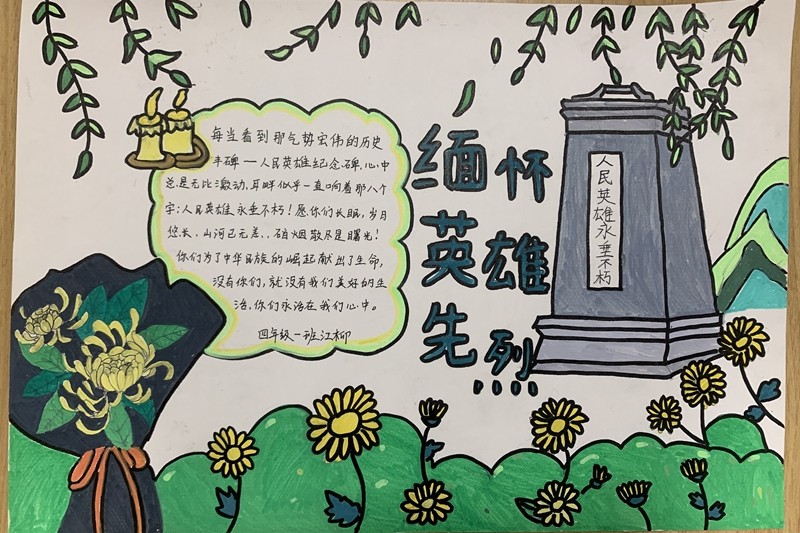 每当看到那气势宏伟的历史
丰碑——人民英雄纪念碑,心中
总是无比激动,耳畔似乎一直响着那八个
字:人民英雄永垂不朽!愿你们长眠,岁月
悠长,山河已无恙,硝烟散尽是曙光!
你们为了中华民族的崛起献出了生命,
没有你们,就没有我们美好的生
活,你们永活在我们心中。
四年级一班江柳
缅怀
英雄
先烈
人民英雄永垂不朽